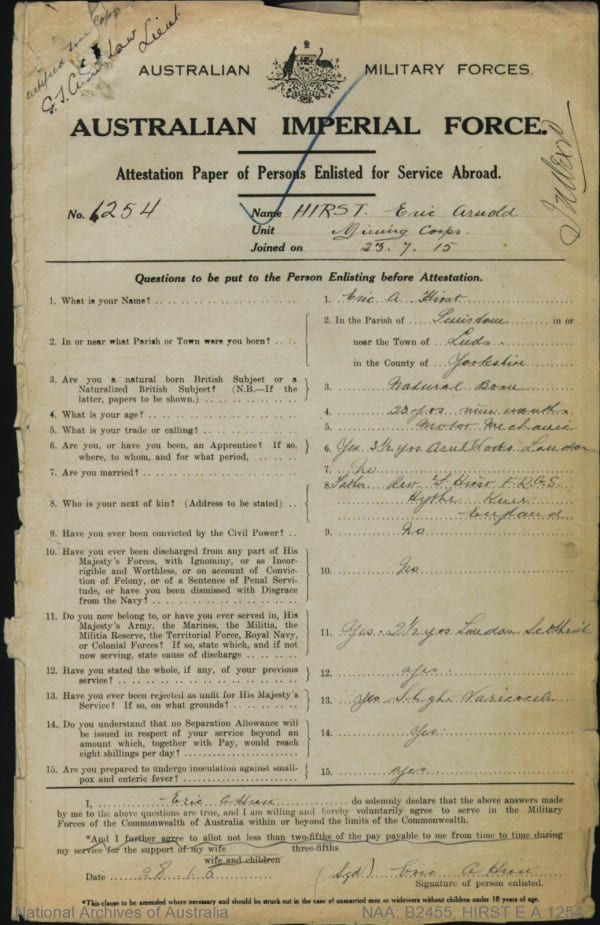 certified true copy
Lieut.
AUSTRALIAN MILITARY FORCES.
AUSTRALIAN IMPERIAL FORCE.
Attestation Paper of Persons Enlisted for Service Abroad.
No. 1254 Name HIRST. Eric Arnold
Unit Mining Corps.
Joined on 23.7.15
Questions to be put to the Person Enlisting before Attestation.
1. What is your Name? 1. Eric A. Hirst
2. In or near what Parish or Town were you born? 2. In the Parish of in or
near the Town of Leeds
in the County of Yorkshire
3. Are you a natural born British Subject or a
Naturalized British Subject? (N.B.—If the
latter, papers to be shown.) 3. Natural Born
4. What is your age? 4. 23 yrs. nine months
5. What is your trade or calling? 5. Motor Mechanic
6. Are you, or have you been, an Apprentice? If so,
where, to whom, and for what period, 6. Yes. 3½ yrs London
7. Are you married? 7. No
8. Who is your next of kin? (Address to be stated) 8. Father Rev. Hirst F.R.G.S.
Hythe Kent
England
9. Have you ever been convicted by the Civil Power? 9. No
10. Have you ever been discharged from any part of His
Majesty's Forces, with Ignominy, or as Incor-
rigible and Worthless, or on account of Convic-
tion of Felony, or of a Sentence of Penal Servi-
tude, or have you been dismissed with Disgrace
from the Navy? 10. No
11. Do you now belong to, or have you ever served in, His
Majesty's Army, the Marines, the Militia, the
Militia Reserve, the Territorial Force, Royal Navy,
or Colonial Forces? If so, state which, and if not
now serving, state cause of discharge 11. Yes. 2½ yrs London
12. Have you stated the whole, if any, of your previous
service? 12. yes.
13. Have you ever been rejected as unfit for His Majesty's
Service? If so, on what grounds? 13. yes Slight Varicocele
14. Do you understand that no Separation Allowance will
be issued in respect of your service beyond an
amount which, together with Pay, would reach
eight shillings per day? 14. Yes.
15. Are you prepared to undergo inoculation against small-
pox and enteric fever? 15. yes
I, Eric A Hirst do solemnly declare that the above answers made
by me to the above questions are true, and I am willing and hereby voluntarily agree to serve in the Military
Forces of the Commonwealth of Australia within or beyond the limits of the Commonwealth.
*And I further agree to allot not less than two-fifths of the pay payable to me from time to time during
my service for the support of my wife three-fifths
wife and children
Date (Sgd.) Eric A Hirst
Signature of person enlisted.
*This clause to be amended where necessary and should be struck out in the case of unmarried men or widowers without children under 18 years of age.
National Archives of Australia NAA: B2455, HIRST E A 1254